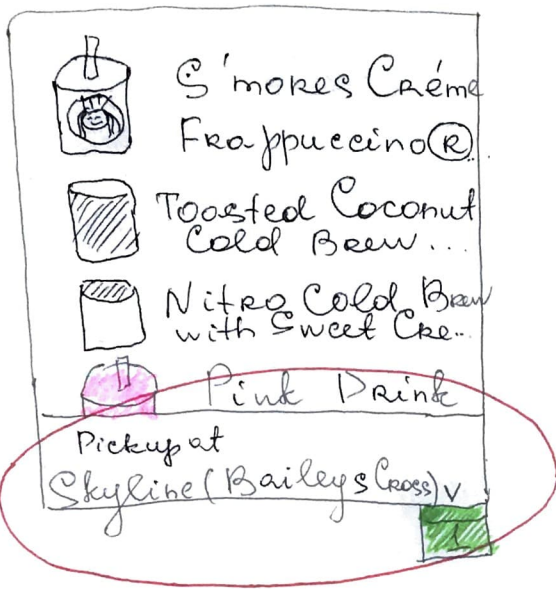 S'mores Créme
Frappuccino®
Toosted Coconut
Cold Brew...
Nitro Cold Brew
with Sweet Cre..
Pink Drink
Pickup at
Skyline (Baileys Cross) v
1